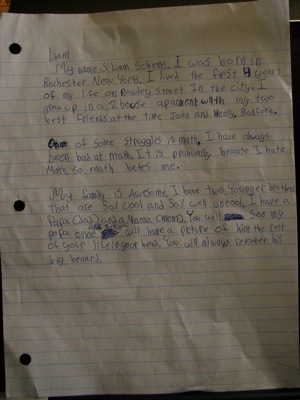 Liam
My name is Liam Schenk. I was born in
Rochester New York. I lived the first 4 years
of my life on Rowley Street In the city. I
grew up in a 2 house apartment with my two
best friends at the time John and Henry,
One of some struggles is math. I have always
been bad at math. It is probably because I hate
Math, so math hates me.
My family is Awesome. I have two younger brothers
that are 50% cool and 50% well uncool. I have a
Papa (Dad) and a Mama (mom). You will see my
papa once will have a picture of him the rest
of your life in your head. You will always remeber his
big beaard.